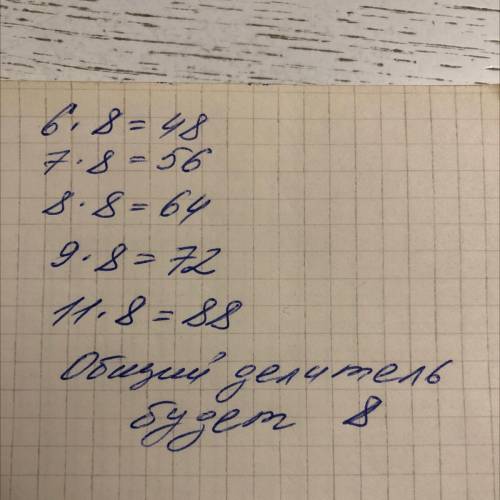 6 · 8 = 48
7 · 8 = 56
8 · 8 = 64
9 · 8 = 72
11 · 8 = 88
Общий делитель
будет 8